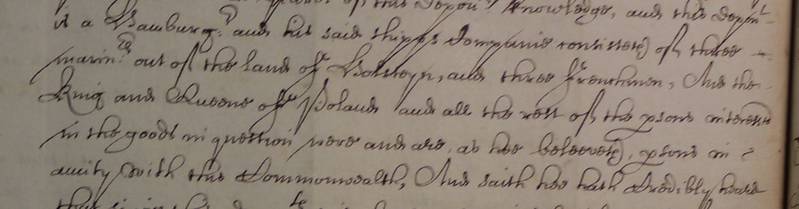 of this depon.t knowledge, and this depon.t
is a Hamburg.r and his said shipps Companie consisteth of three
marin.rs out of the land of Holsteyn, and three Frenchmen, And the
King and Queene of Poland and all the rest of the psons interessed
in the goods in question were and are, as hee beleeveth, psons in
amity with this Commonwealth, And saith hee hath Credibly heard